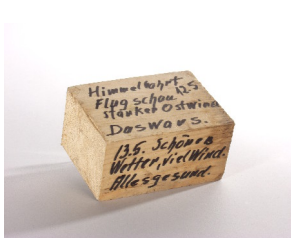 Himmelfahrt
Flugschau 12.5.
starker Ostwind
Das war's.
13.5. Schönes
Wetter, viel Wind.
Alles gesund.